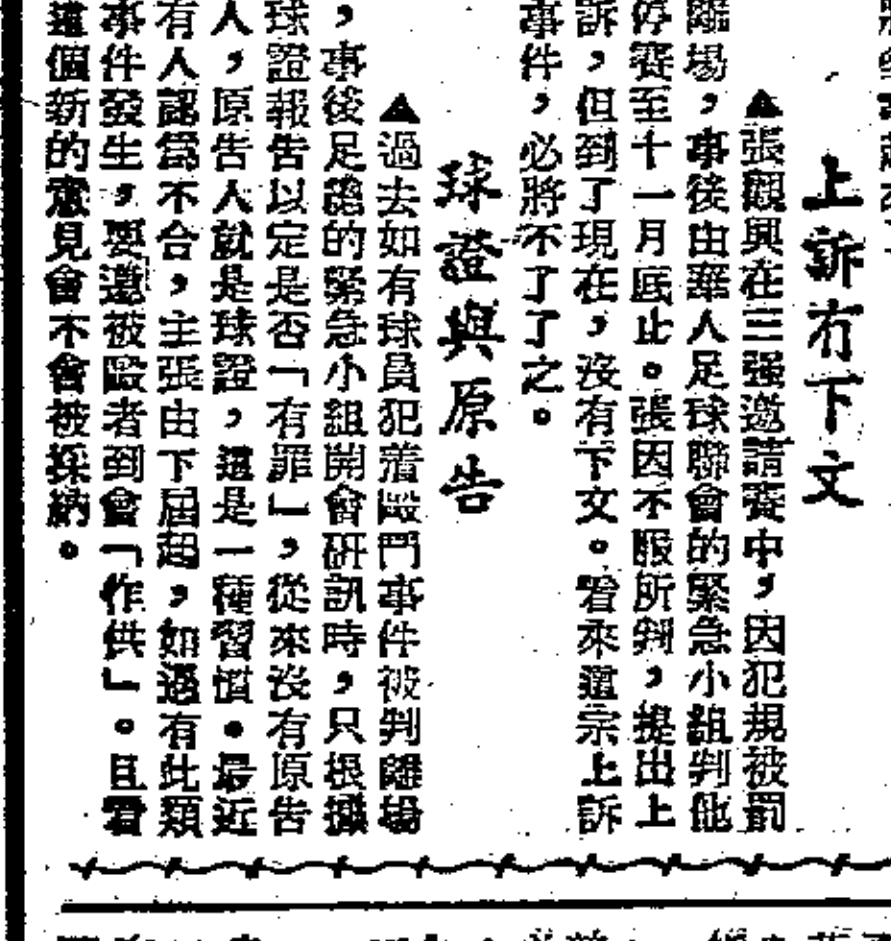 上訴有下文
▲張觀興在三强邀請賽中，因犯規被罰
離場，事後由華人足球聯會的緊急小組判他
停賽至十一月底止。張因不服所判，提出上
訴，但到了現在，沒有下文。看來這宗上訴
事件，必將不了了之。
球證與原告
▲過去如有球員犯着毆鬥事件被判離場
，事後足總的緊急小組開會研訊時，只根據
球證報告以定是否「有罪」，從來沒有原告
人，原告人就是球證，這是一種習慣。最近
有人認爲不合，主張由下屆起，如遇有此類
事件發生，要邀被毆者到會「作供」。且看
這個新的意見會不會被採納。